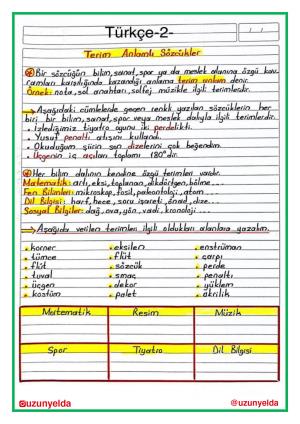 Türkçe-2-
Terim Anlamlı Sözcükler
Bir sözcüğün bilim, sanat, spor ya da meslek alanına özgü kav-
ramları karşıladığında kazandığı anlama terim anlam denir.
Örnek: nota, sol anahtarı, solfej müzikle ilgili terimlerdir.
Aşağıdaki cümlelerde geçen renkli yazılan sözcüklerin her
biri bir bilim, sanat, spor veya meslek dalıyla ilgili terimlerdir.
• İzlediğimiz tiyatro oyunu iki perdelikti.
• Yusuf, penaltı atışını kullandı.
• Okuduğum şiirin son dizelerini çok beğendim.
• Üçgenin iç açıları toplamı 180°dir.
Her bilim dalının kendine özgü terimleri vardır.
Matematik: artı, eksi, toplanan, dikdörtgen, bölme...
Fen Bilimleri: mikroskop, fosil, paleontoloji, atom...
Dil Bilgisi: harf, hece, soru işareti, önad, dize...
Sosyal Bilgiler: dağ, ova, yön, vadi, kronoloji...
Aşağıda verilen terimleri ilgili oldukları alanlara yazalım.
• korner • eksilen • enstrüman
• tümce • flüt • çarpı
• flüt • sözcük • perde
• tuval • smaç • penaltı
• üçgen • dekor • yüklem
• kostüm • palet • akrilik
Matematik Resim Müzik
Spor Tiyatro Dil Bilgisi
@uzunyelda @uzunyelda